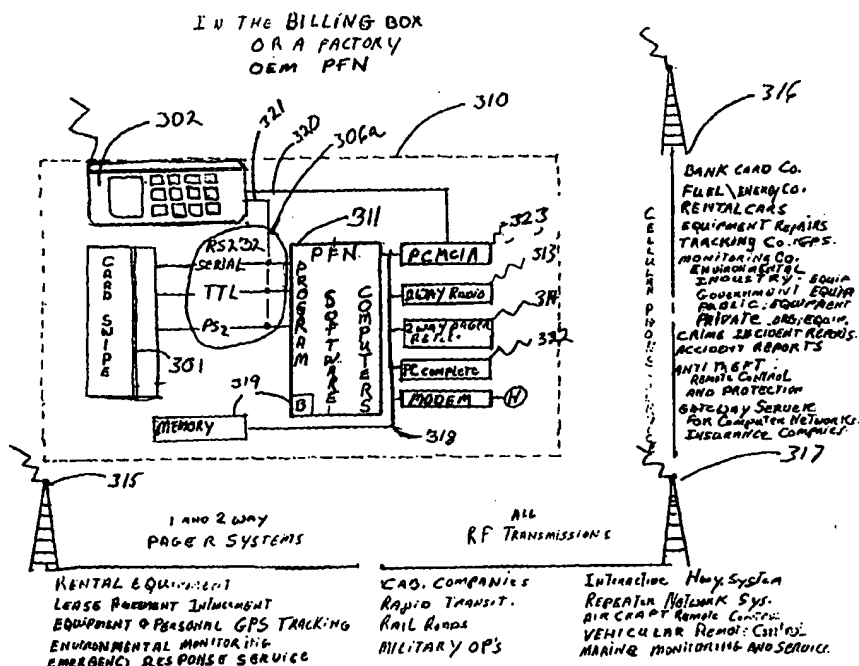 IN THE BILLING BOX
OR A FACTORY
OEM PFN
302
321
320
306a
310
316
311
323
RS232
SERIAL
TTL
PS2
CARD SWIPE
301
PFN
PROGRAM
SOFTWARE
COMPUTERS
B
PCMCIA
2WAY RADIO
313
2WAY PAGER
314
PC COMPLETE
322
MODEM
H
MEMORY
319
318
BANK CARD CO.
FUEL\ENERGY CO.
RENTAL CARS
EQUIPMENT REPAIRS
TRACKING CO. GPS.
MONITORING CO.
ENVIRONMENTAL
INDUSTRY: EQUIP
GOVERNMENT EQUIP
PUBLIC: EQUIPMENT
PRIVATE ORG: EQUIP.
CRIME INCIDENT REPORTS.
ACCIDENT REPORTS
ANTI THEFT:
REMOTE CONTROL
AND PROTECTION
GATEWAY SERVER
FOR COMPUTER NETWORKS.
INSURANCE COMPANIES.
CELLULAR PHONE
315
317
1 AND 2 WAY
PAGER SYSTEMS
ALL
RF TRANSMISSIONS
RENTAL EQUIPMENT
LEASE PAYMENT
EQUIPMENT & PERSONAL GPS TRACKING
ENVIRONMENTAL MONITORING
EMERGENCY RESPONSE SERVICE
CAB. COMPANIES
RAPID TRANSIT.
RAIL ROADS
MILITARY OP'S
INTERACTIVE HWY. SYSTEM
REPEATER NETWORK SYS.
AIR CRAFT REMOTE CONTROL
VEHICULAR REMOTE CONTROL
MARINE MONITORING AND SERVICE.